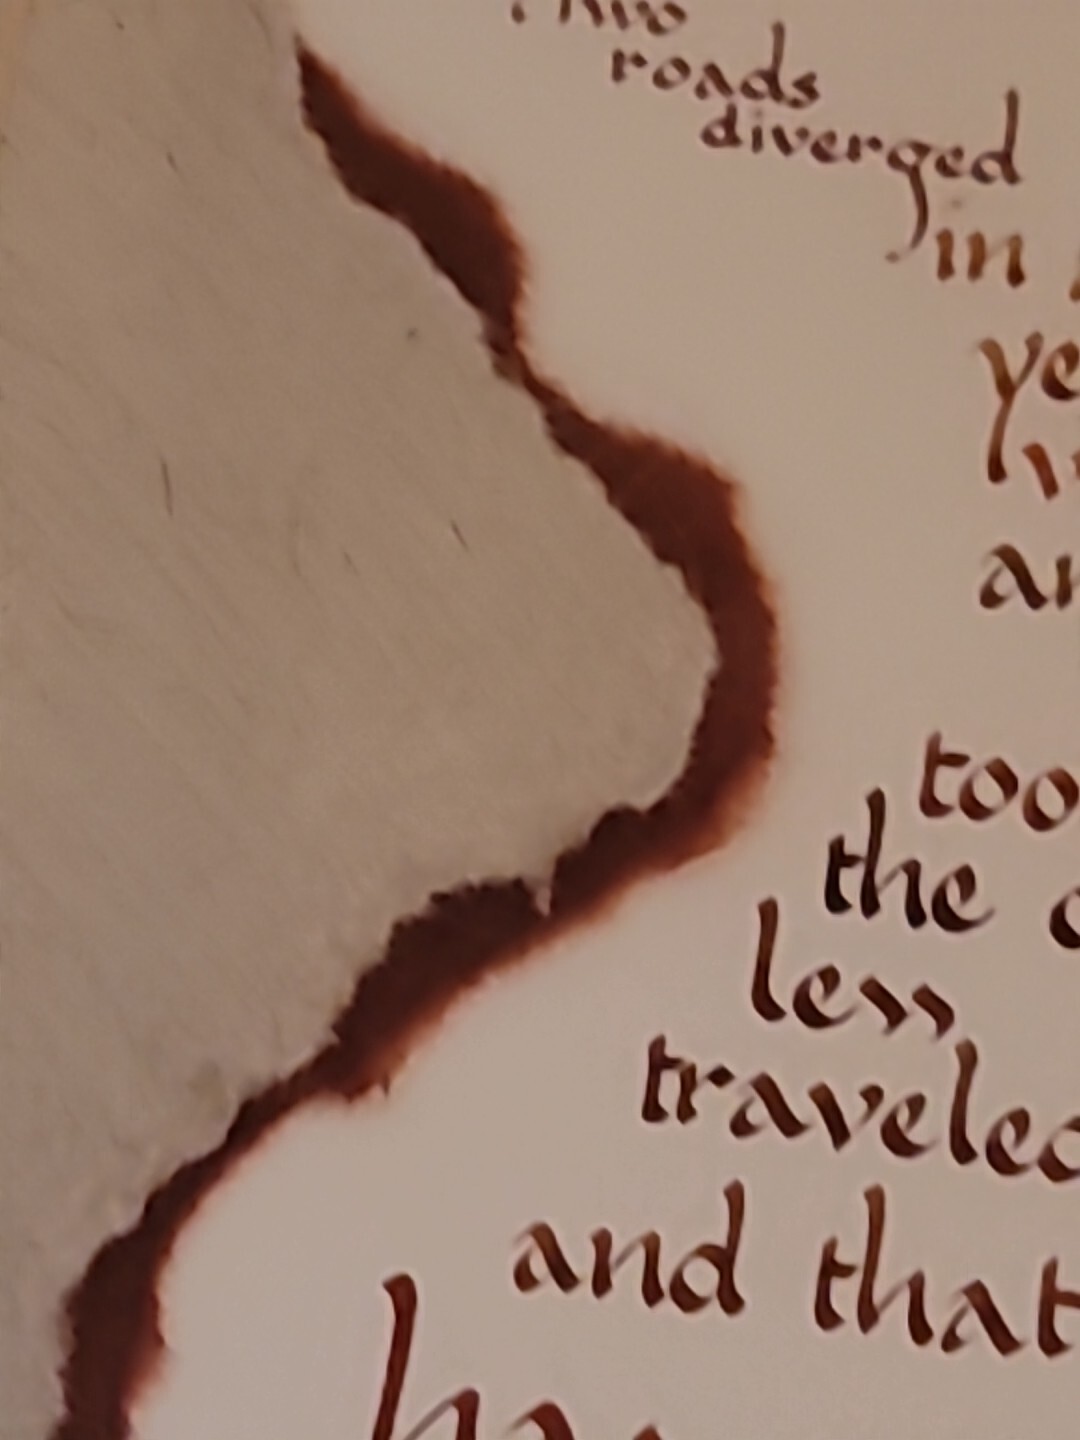 Two
roads
diverged
in
ye
an
too
the
less
traveled
and that
ha